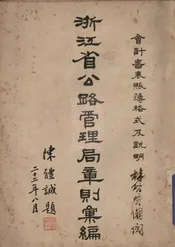 會計書表賬簿格式及說明
浙江省公路管理局章則彙編
陳體誠題
二十二年八月